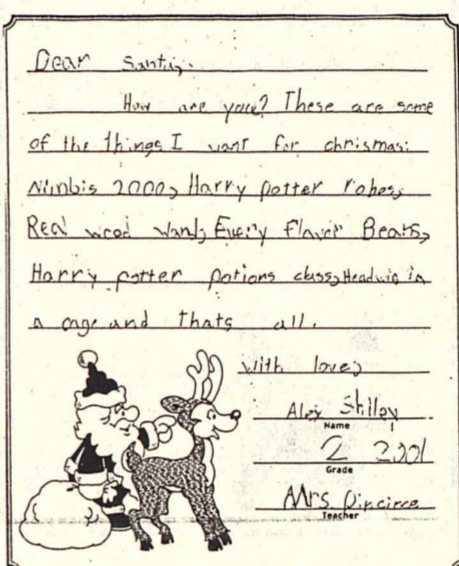 Dear Santa,
How are you? These are some
of the things I want for chrismas:
Nimbis 2000, Harry potter robes,
Real wood wand, Every flaver Beans,
Harry potter potions class, Headwig in
a cage and thats all.
with love,
Alex
Name
2 2001
Grade
Mrs
Teacher